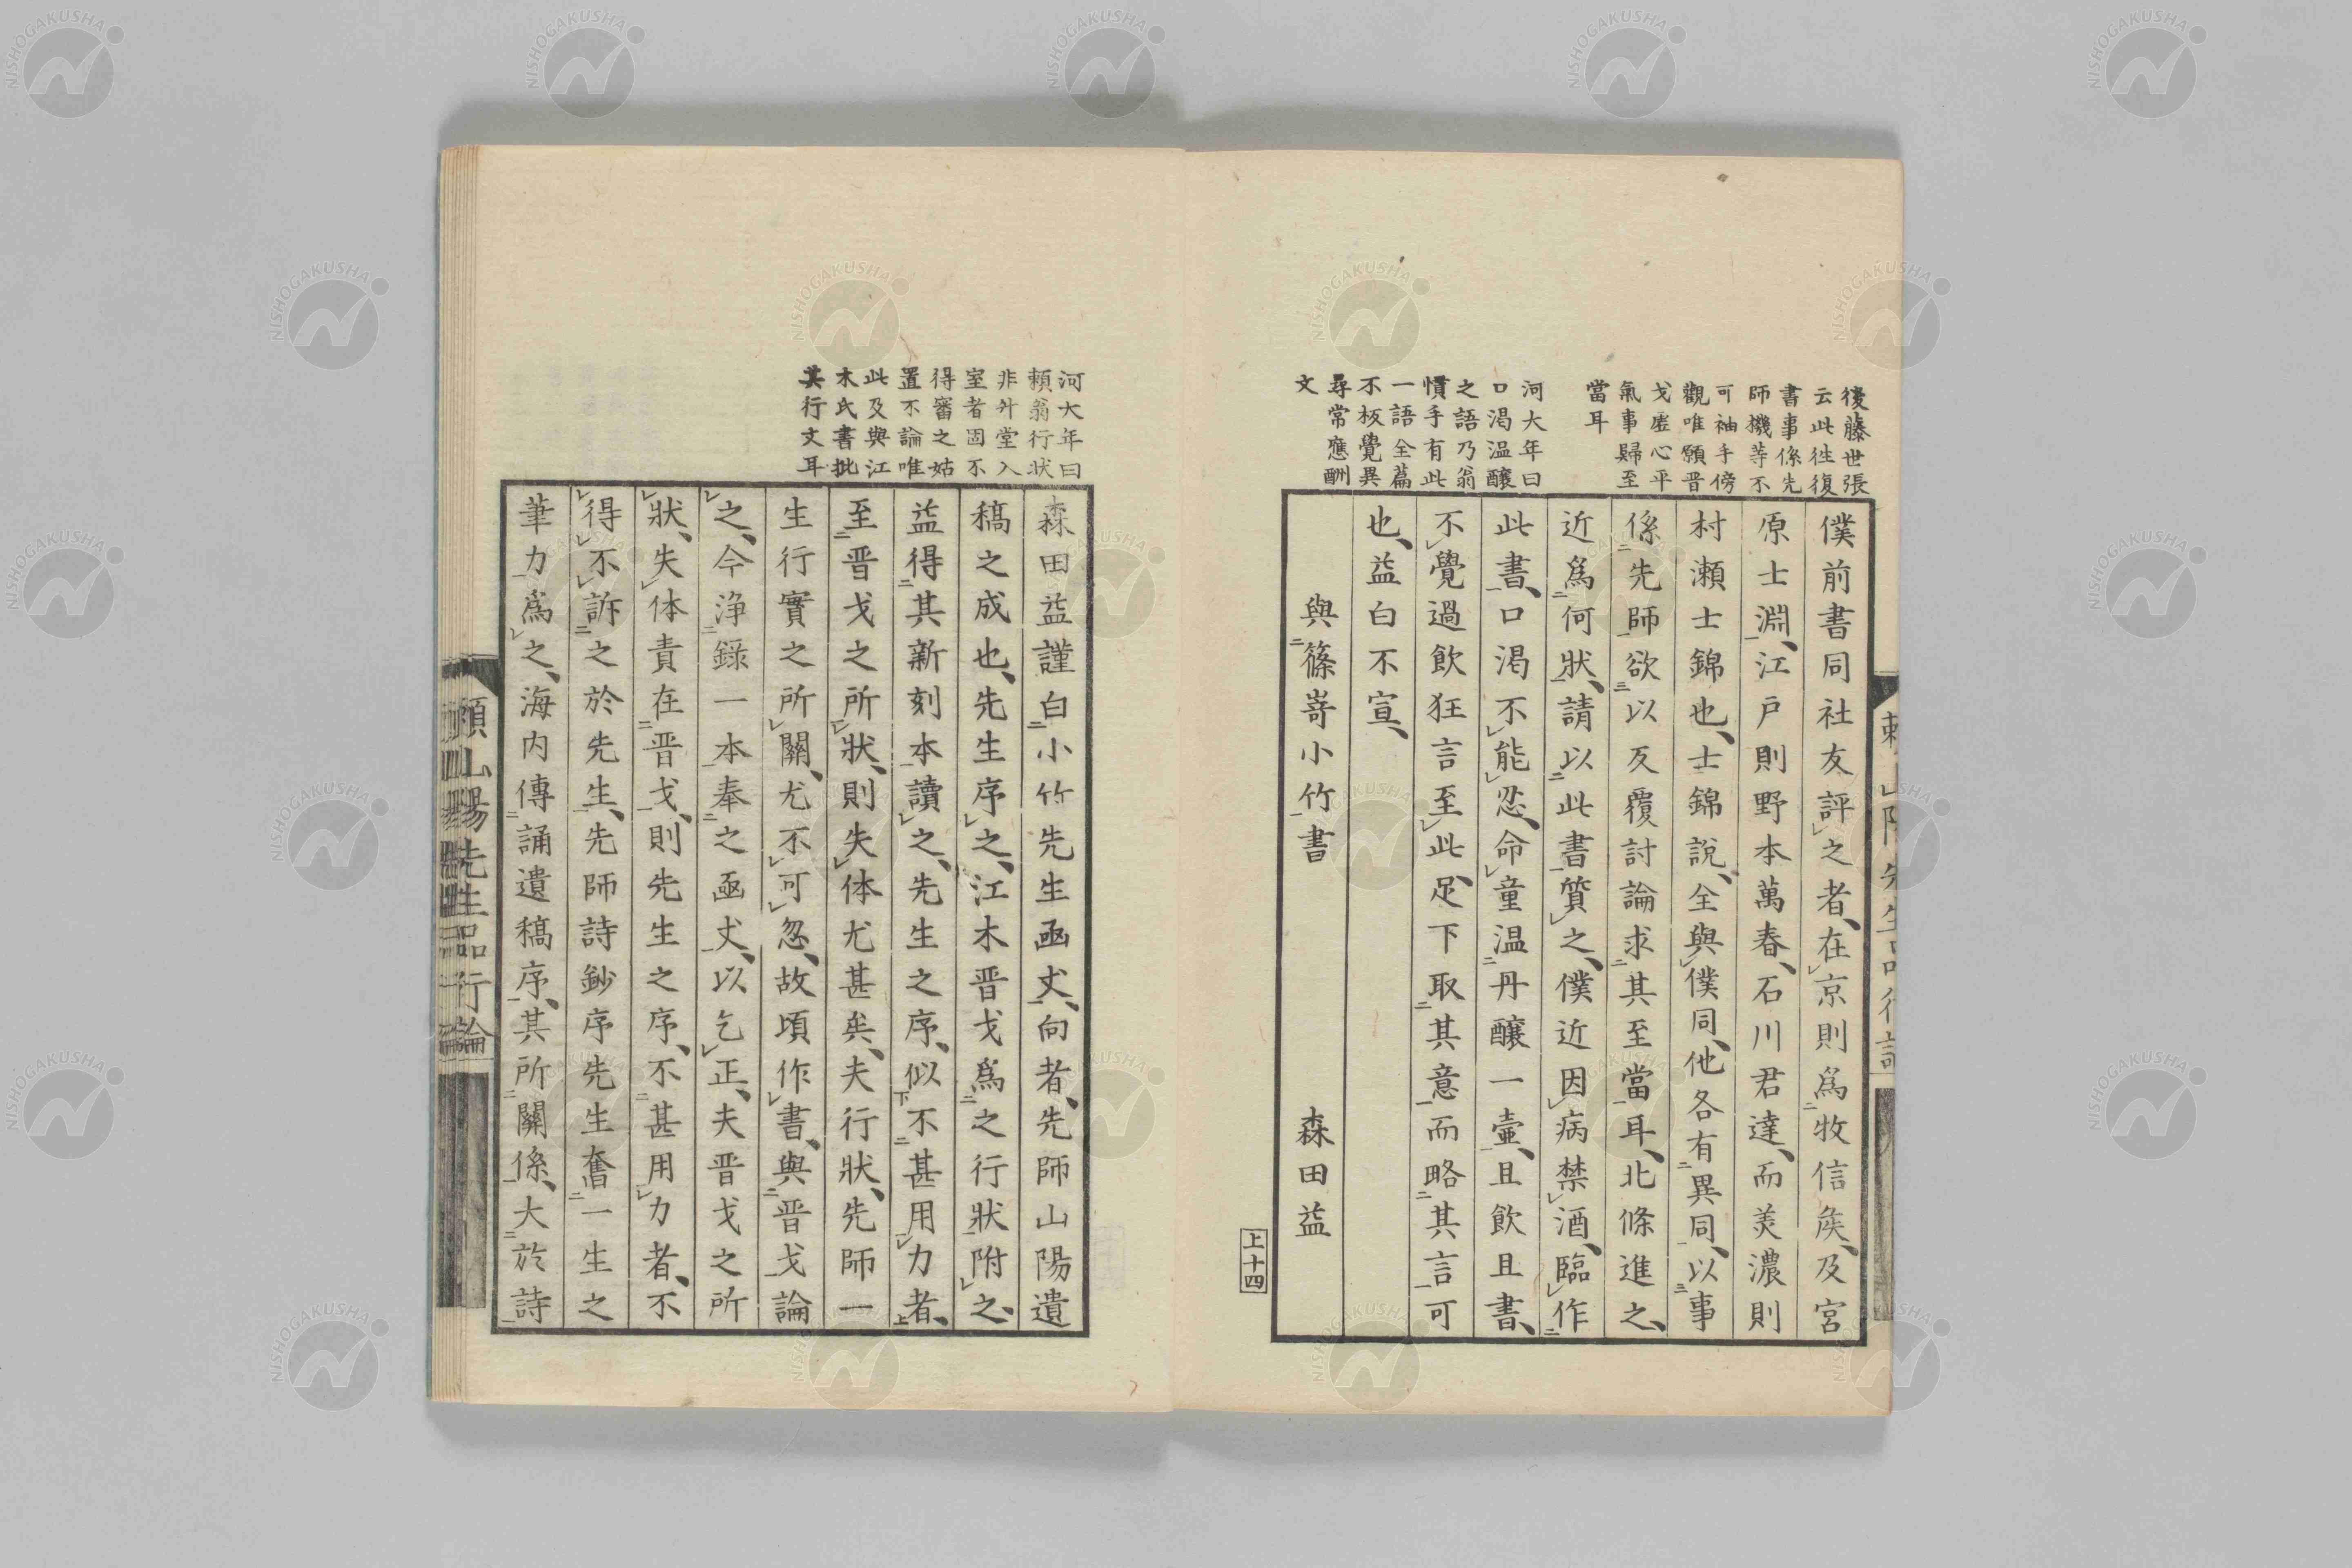 後藤世張
云此往復
書事係先
師機等不
可袖手傍
觀唯願晋
戈虛心平
氣事歸至
當耳
河大年曰
口渇温釀
之語乃翁
慣手有此
一語全篇
不板覺異
尋常應酬
文
僕前書同社友評之者、在京則爲牧信矦、及宮
原士淵、江戸則野本萬春、石川君達、而美濃則
村瀬士錦也、士錦説、全與僕同、他各有異同、以事
係先師、欲以反覆討論求其至當耳、北條進之、
近爲何狀、請以此書質之、僕近因病禁酒、臨作
此書、口渇不能忍、命童温丹釀一壷、且飲且書、
不覺過飲狂言至此、足下取其意而略其言可
也、益白不宣、
與篠嵜小竹書　森田益
上十四
河大年曰
頼翁行狀
非升堂入
室者固不
得審之姑
置不論唯
此及與江
木氏書批
其行文耳
森田益謹白小竹先生函丈、向者、先師山陽遺
稿之成也、先生序之、江木晋戈爲之行狀附之、
益得其新刻本讀之、先生之序、似不甚用力者、
至晋戈之所狀、則失体尤甚矣、夫行狀、先師一
生行實之所關、尤不可忽、故頃作書、與晋戈論
之、今浄録一本奉之函丈、以乞正、夫晋戈之所
狀、失体責在晋戈、則先生之序、不甚用力者、不
得不訴之於先生、先師詩鈔序先生奮一生之
筆力爲之、海内傳誦遺稿序、其所關係、大於詩
頼山陽先生品行論
NISHOGAKUSHA